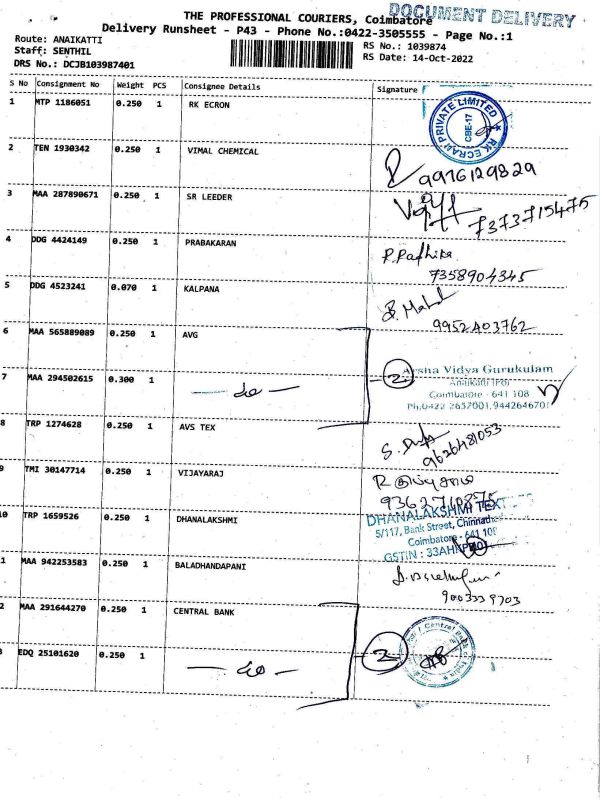 THE PROFESSIONAL COURIERS, Coimbatore
DOCUMENT DELIVERY
Delivery Runsheet - P43 - Phone No.:0422-3505555 - Page No.:1
Route: ANAIKATTI
RS No.: 1039874
Staff: SENTHIL
RS Date: 14-Oct-2022
DRS No.: DCJB103987401
S No Consignment No Weight PCS Consignee Details Signature
1 MTP 1186051 0.250 1 RK ECRON
RK ECRAN PRIVATE LIMITED
CBE-17
2 TEN 1930342 0.250 1 VIMAL CHEMICAL
9976129829
3 MAA 287890671 0.250 1 SR LEEDER
7373715475
4 DDG 4424149 0.250 1 PRABAKARAN
P. Radhika
7358904345
5 DDG 4523241 0.070 1 KALPANA
9952403762
6 MAA 565889089 0.250 1 AVG
2 Arsha Vidya Gurukulam
Anaikatti (PO)
7 MAA 294502615 0.300 1
Coimbatore - 641 108
Ph.0422 2657001, 9442646701
8 TRP 1274628 0.250 1 AVS TEX
9626481053
9 TMI 30147714 0.250 1 VIJAYARAJ
9362710875
10 TRP 1659526 0.250 1 DHANALAKSHMI
DHANALAKSHMI TEX
5/117, Bank Street, Chinnathad
Coimbatore - 641 108
GSTIN : 33AH
1 MAA 942253583 0.250 1 BALADHANDAPANI
9003339703
2 MAA 291644270 0.250 1 CENTRAL BANK
2 Central Bank of India
3 EDQ 25101620 0.250 1